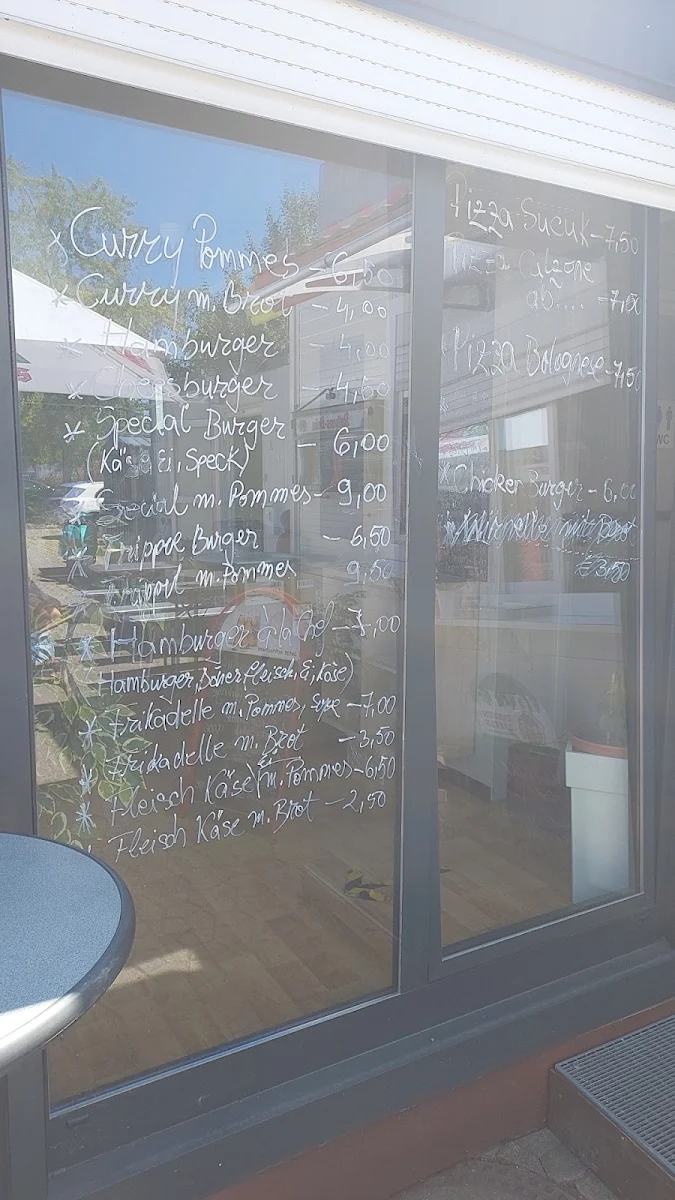 * Curry Pommes - 6,50
* Curry m. Brot - 4,00
* Hamburger - 4,00
* Cheesburger - 4,50
* Special Burger - 6,00
(Käse, Ei, Speck)
Special m. Pommes - 9,00
* Trippel Burger - 6,50
* Trippel m. Pommes 9,50
* Hamburger à la Chef - 7,00
(Hamburger, Döner fleisch, Ei, Käse)
* Frikadelle m. Pommes, - 7,00
* Frikadelle m. Brot - 3,50
* Fleisch Käse m. Pommes - 6,50
Fleisch Käse m. Brot - 2,50
Pizza Sucuk - 7,50
Pizza Calzone
ab.... = 7,50
Pizza Bolognese - 7,50
* Chicken Burger - 6,00
mit Brot
€ 3,50
WC